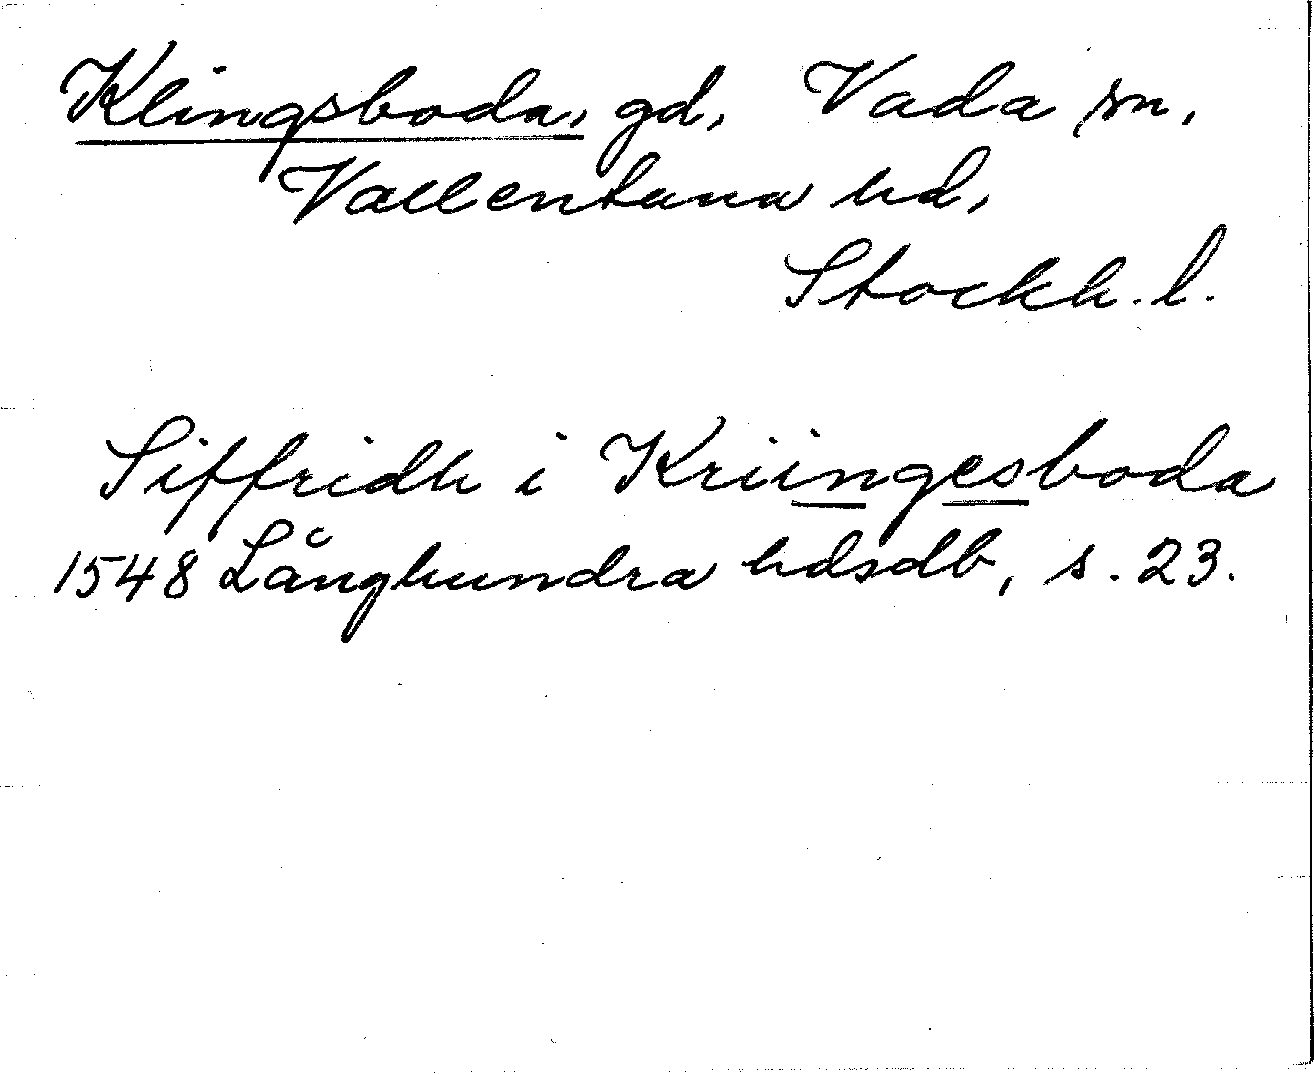 Klingsboda, gd, Vada sn,
Vallentuna hd,
Stockh. l.
Siffridh i Kriingesboda
1548 Långhundra hdsdb, s. 23.